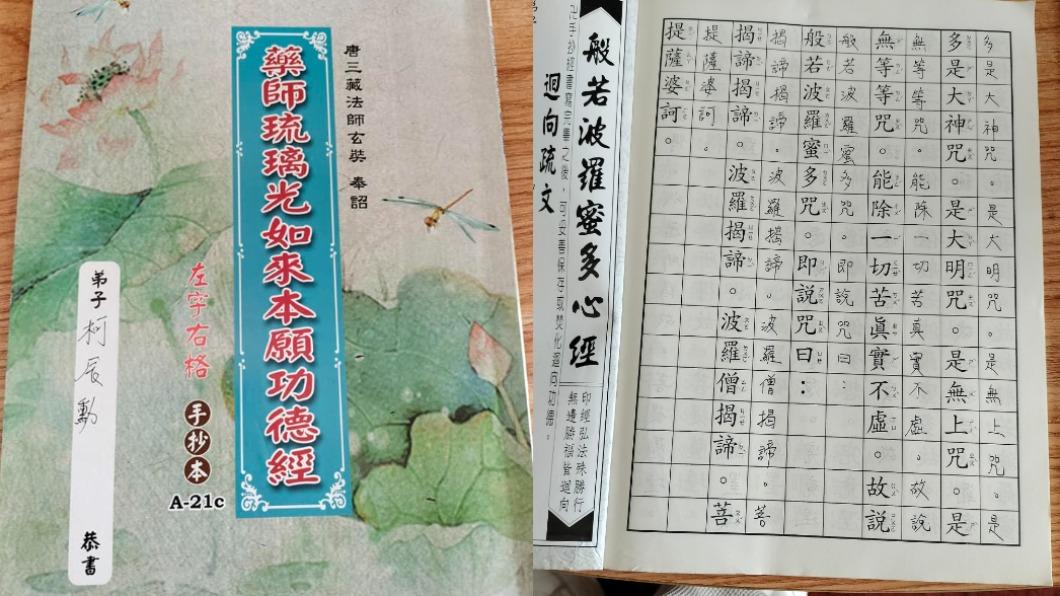 唐三藏法師玄奘 奉詔
藥師琉璃光如來本願功德經
左字右格
手抄本
A-21c
弟子 柯辰勳 恭書
多是大神咒。是大明咒。是無上咒。是
多是大神咒。是大明咒。是無上咒。是
無等等咒。能除一切苦真實不虛。故說
無等等咒。能除一切苦眞實不虛。故說
般若波羅蜜多咒。即說咒曰:
般若波羅蜜多咒。即說咒曰:
揭諦揭諦。波羅揭諦。波羅僧揭諦。菩
揭諦揭諦。波羅揭諦。波羅僧揭諦。菩
提薩婆訶。
提薩婆訶。
般若波羅蜜多心經
印經弘法殊勝行
無邊勝福皆迴向
手抄經書寫完畢之後,可妥善保存或焚化迴向功德。
迴向疏文